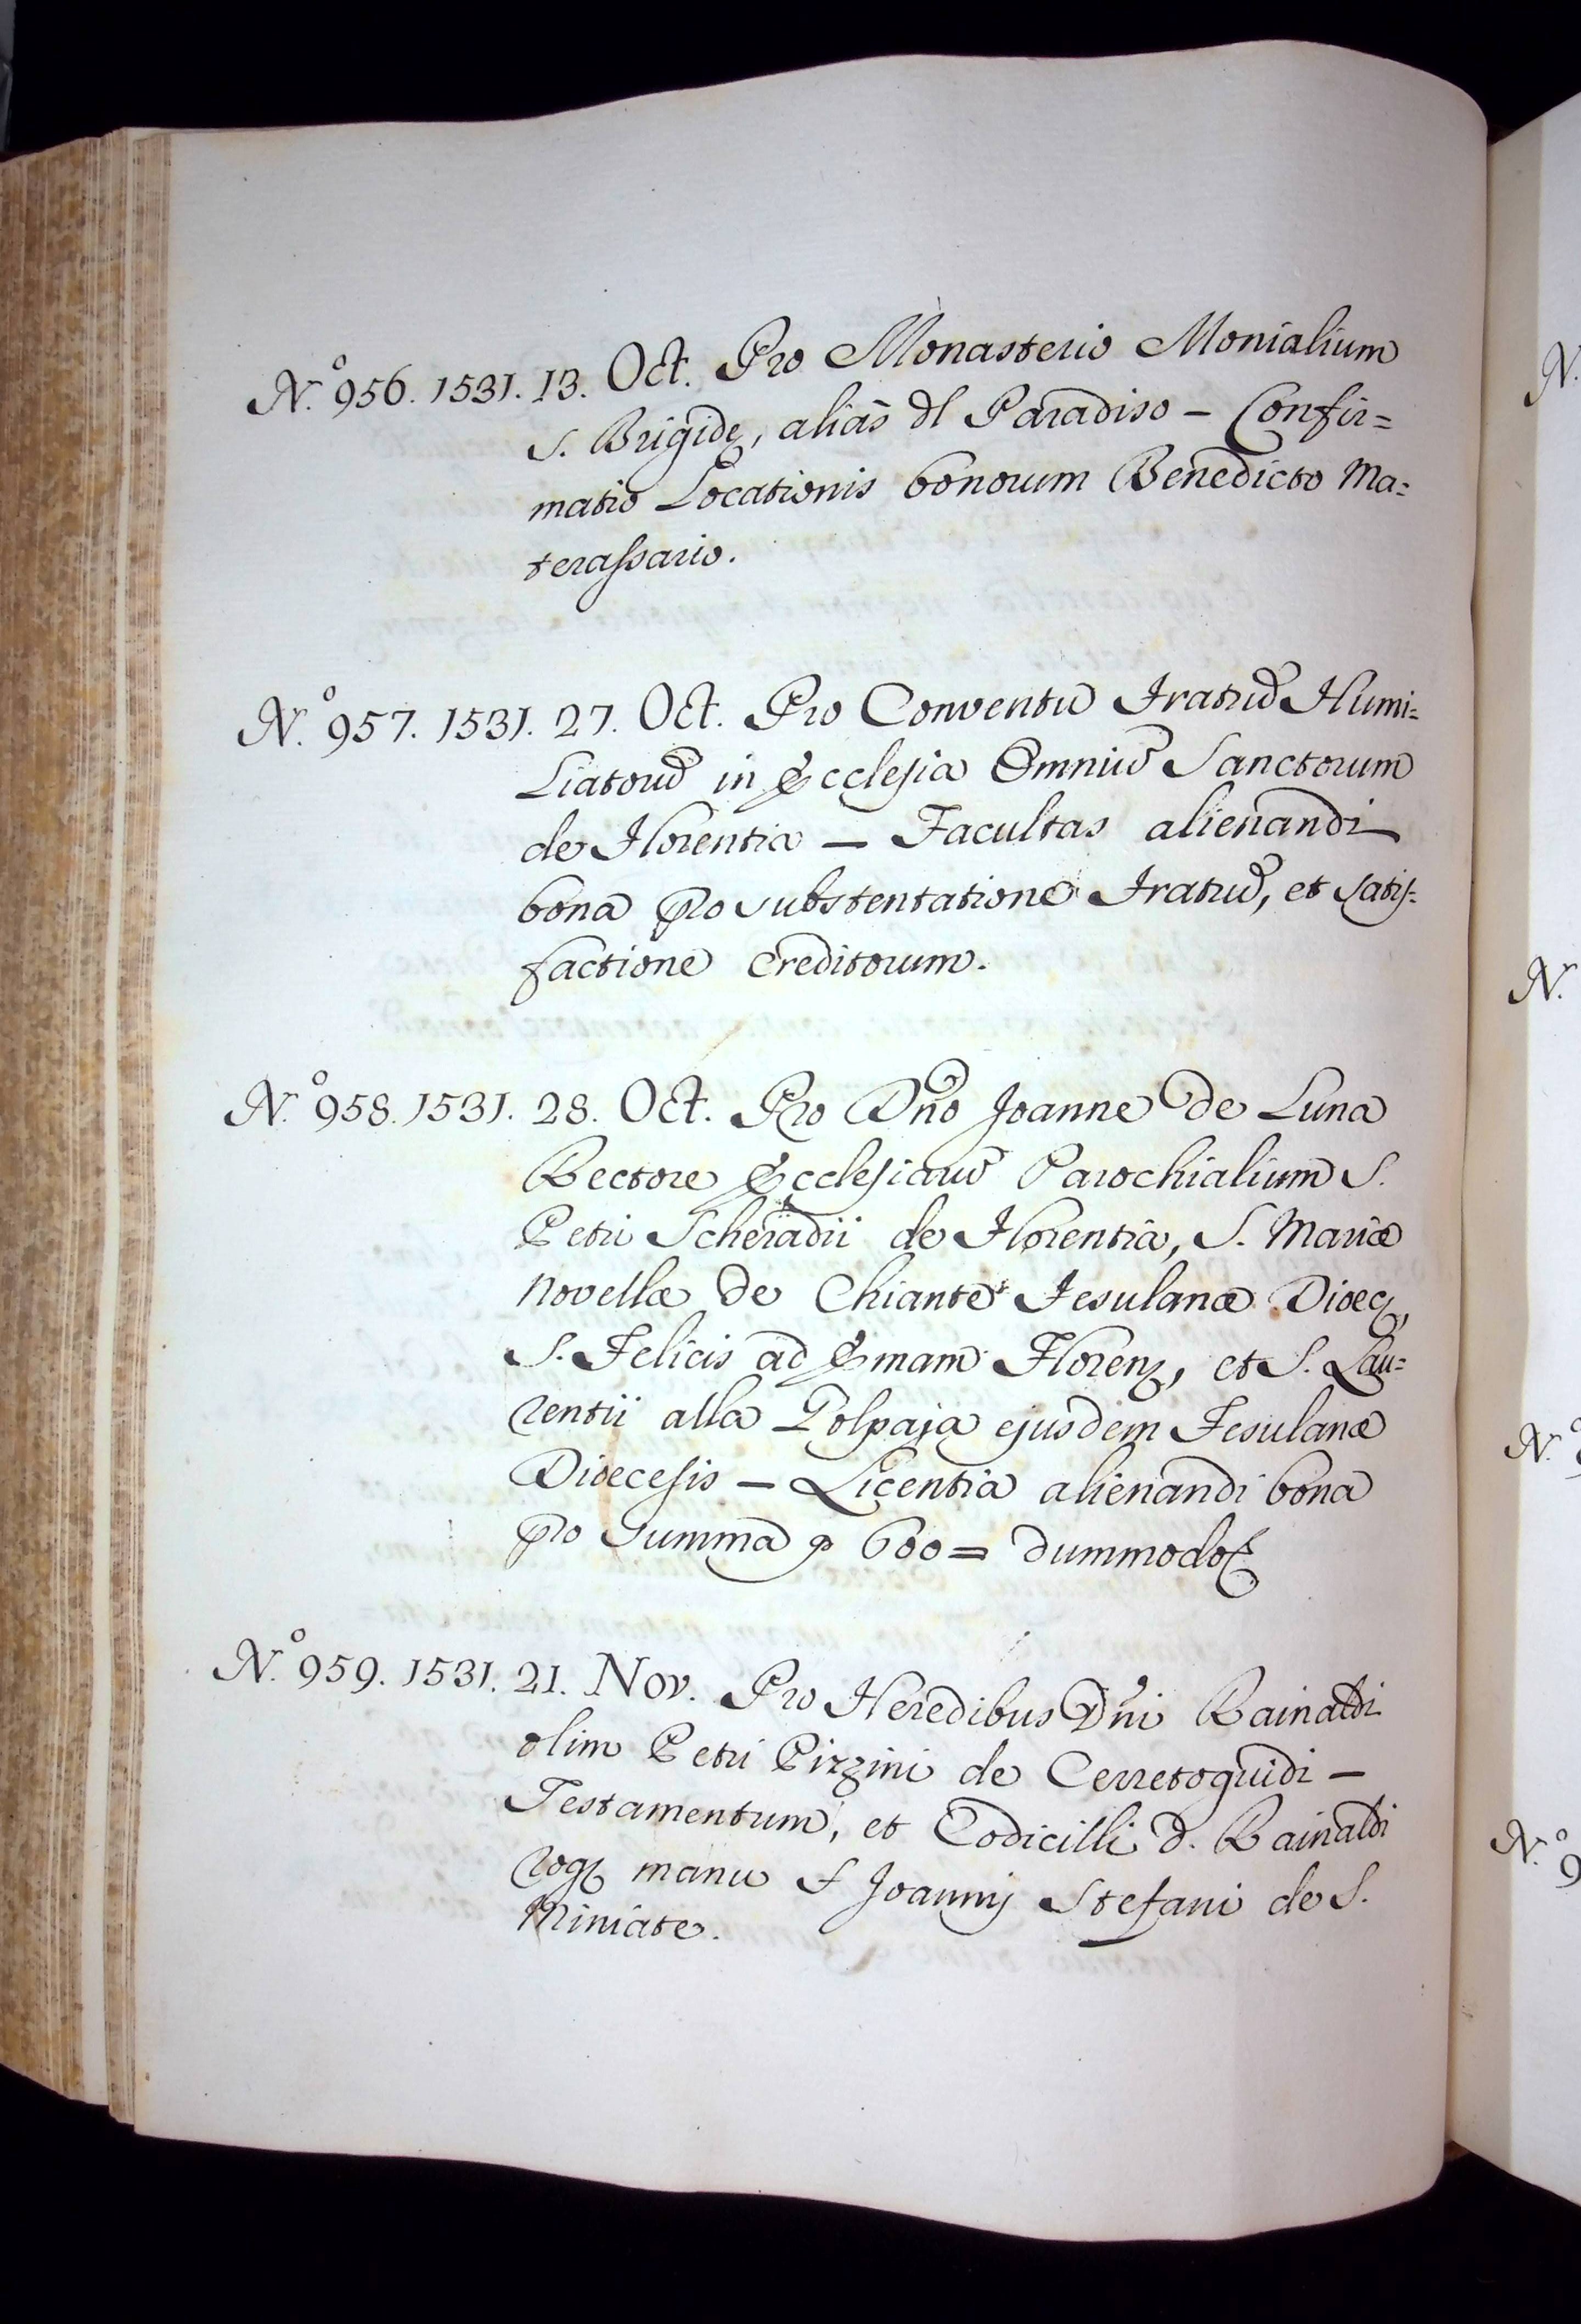 N.º 956. 1531. 13. Oct. Pro Monasterio Monialium
S. Brigidę, aliàs dl Paradiso – Confir=
matio Locationis bonorum Benedicto Ma=
terassario.
N.º 957. 1531. 27. Oct. Pro Conventu Fratrū Humi=
Liatorū in Ecclesia Omniū Sanctorum
de Florentia – Facultas alienandi
bona pro substentatione Fratrū, et satis=
factione Creditorum.
N.º 958. 1531. 28. Oct. Pro Dño Joanne de Luna
Rectore Ecclesiarū Parochialium S.
Petri Scheradii de Florentia, S. Mariæ
Novellæ de Chiante Fesulanæ Dioeç,
S. Felicis ad Emam Florenz, et S. Lau=
rentii alla Polpaja ejusdem Fesulanæ
Dioecesis – Licentia alienandi bona
pro summa 600 = dummodo
N.º 959. 1531. 21. Nov. Pro Heredibus Dñi Rainaldi
olim Petri Pizzini de Cerretoguidi –
Testamentum, et Codicilli d. Rainaldi
manu Joannis Stefani de S.
Miniate.
N.
N.
N.º
N.º 9